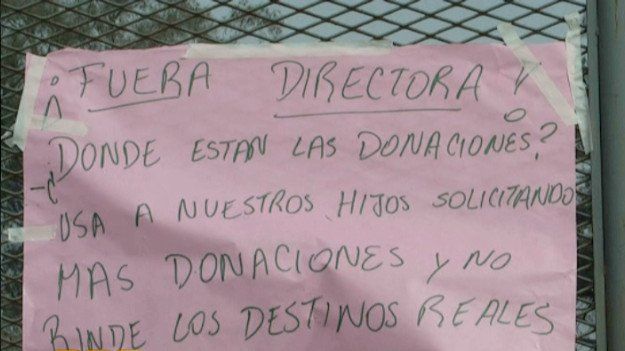 ¡FUERA DIRECTORA!
¿DONDE ESTAN LAS DONACIONES?
USA A NUESTROS HIJOS SOLICITANDO
MAS DONACIONES Y NO
RINDE LOS DESTINOS REALES